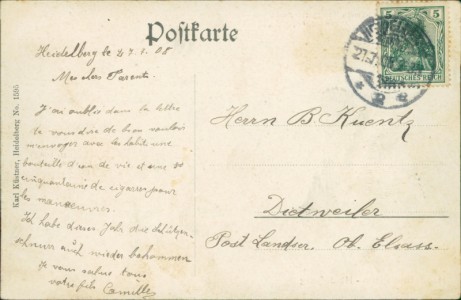 Postkarte
5 5
DEUTSCHES REICH
Heidelberg
Mes chers Parents
J'ai oublié dans la lettre
de vous dire de bien vouloir
m'envoyer avec les habits une
bouteille d'eau de vie et une
cinquantaine de cigares pour
les manoeuvres.
Ich habe dieses Jahr die Schützen-
schnur auch wieder bekommen
Je vous salue tous
votre fils Camille
Herrn B. Kuentz
Dietweiler
Post Landser. Ob. Elsass.
Karl Küstner, Heidelberg No. 1595